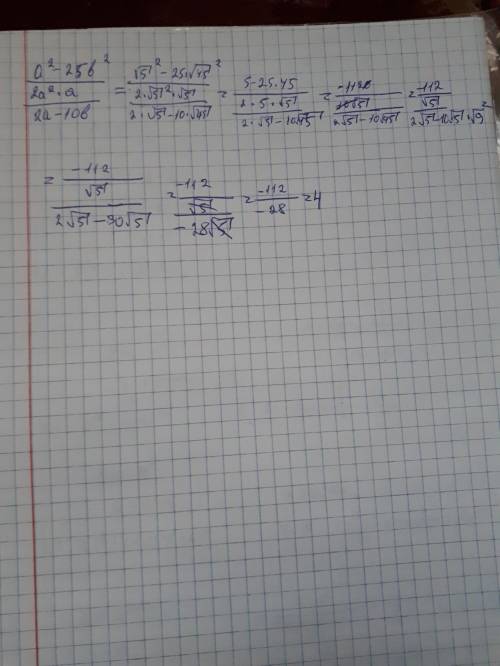 a² - 25b² / 2a²·a / 2a - 10b = √5² - 25·√45² / 2·√5²·√5 / 2·√5 - 10·√45 = 5 - 25·45 / 2·5·√5 / 2·√5 - 10√45 = -1120 / 10√5 / 2√5 - 10√45 = -112 / √5 / 2√5 - 10√5·√9
= -112 / √5 / 2√5 - 30√5 = -112 / √5 / -28√5 = -112 / -28 = 4